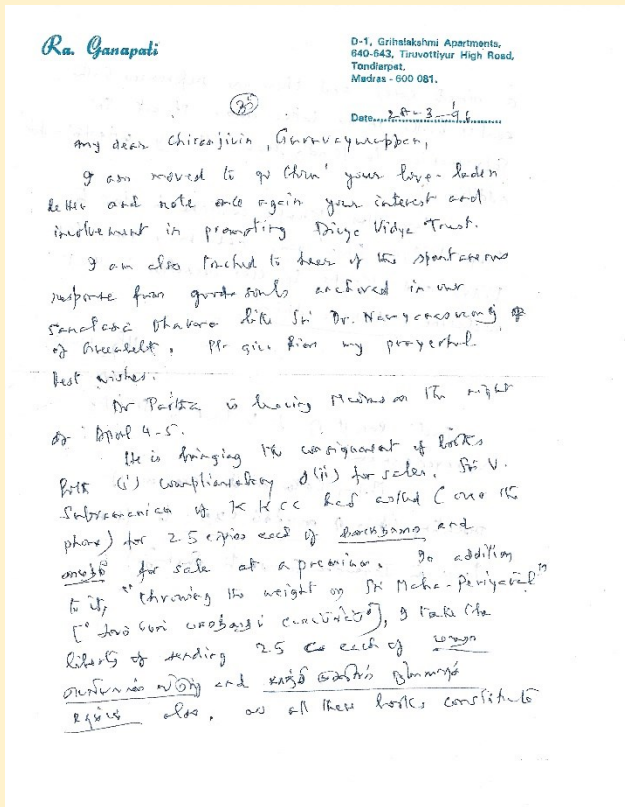 Ra. Ganapati
D-1, Grihalakshmi Apartments,
640-643, Tiruvottiyur High Road,
Tondiarpet,
Madras - 600 081.
Date 28-3-96
My dear Chiranjivin, Guruvayurappan,
I am moved to go thru' your love-laden
letter and note once again your interest and
involvement in promoting Divya Vidya Trust.
I am also touched to hear of the spontaneous
response from good souls anchored in our
Sanatana Dharma like Sri Dr. Narayanaswamy
of Greenbelt. Pl. give him my prayerful
best wishes.
Dr Partha is leaving Madras on the night
of April 4-5.
He is bringing the consignment of books
both (i) complimentary & (ii) for sales. Sri V.
Subramanian of KKCC had asked (over the
phone) for 25 copies each of and
for sale at a premium. In addition
to it, "throwing the weight on Sri Maha-Periyaval"
I take the
liberty of sending 25 each of
and
also, as all these books constitute